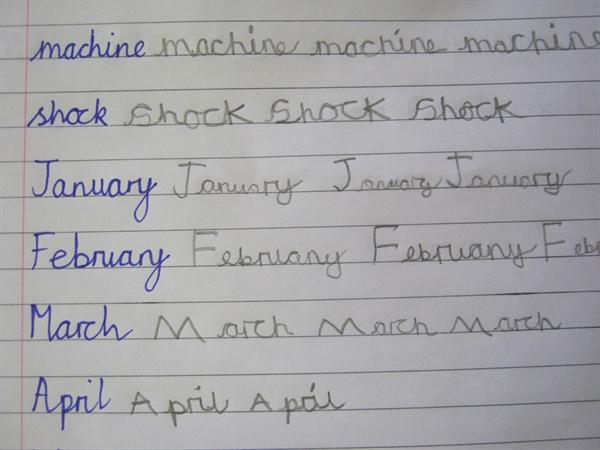 machine machine machine machine
shock shock shock shock
January January January January
February February February Feb
March March March March
April April April